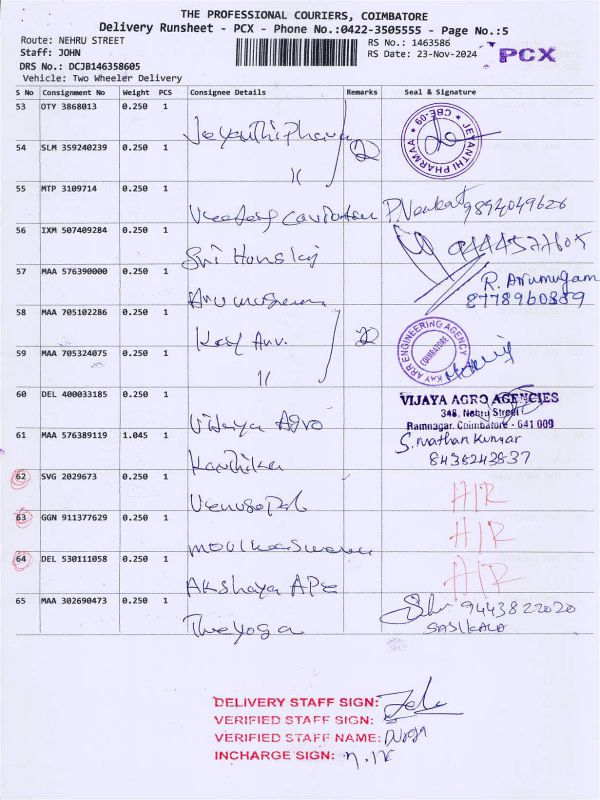 THE PROFESSIONAL COURIERS, COIMBATORE
Delivery Runsheet - PCX - Phone No.:0422-3505555 - Page No.:5
Route: NEHRU STREET
Staff: JOHN
DRS No.: DCJB146358605
Vehicle: Two Wheeler Delivery
RS No.: 1463586
RS Date: 23-Nov-2024
PCX
S No Consignment No Weight PCS Consignee Details Remarks Seal & Signature
53 OTY 3868013 0.250 1
JEYANTHI PHARMAA
CBE-09
54 SLM 359240239 0.250 1 "
55 MTP 3109714 0.250 1 P. Venkat 9894049626
56 IXM 507409284 0.250 1 Sri
57 MAA 576390000 0.250 1 R. Arumugam
8778960889
58 MAA 705102286 0.250 1
KAY ARR ENGINEERING AGENCY
COIMBATORE
59 MAA 705324075 0.250 1 "
60 DEL 400033185 0.250 1 Vijaya Agro
VIJAYA AGRO AGENCIES
348, Nehru Street
Ramnagar, Coimbatore - 641 009
61 MAA 576389119 1.045 1 Karthika S. Nathan Kumar
8438243837
62 SVG 2029673 0.250 1 Venugopal H/R
63 GGN 911377629 0.250 1 H/R
64 DEL 530111058 0.250 1 Akshaya APE H/R
65 MAA 302690473 0.250 1 The yoga 9443822020
SASIKALA
DELIVERY STAFF SIGN:
VERIFIED STAFF SIGN:
VERIFIED STAFF NAME: Durga
INCHARGE SIGN: